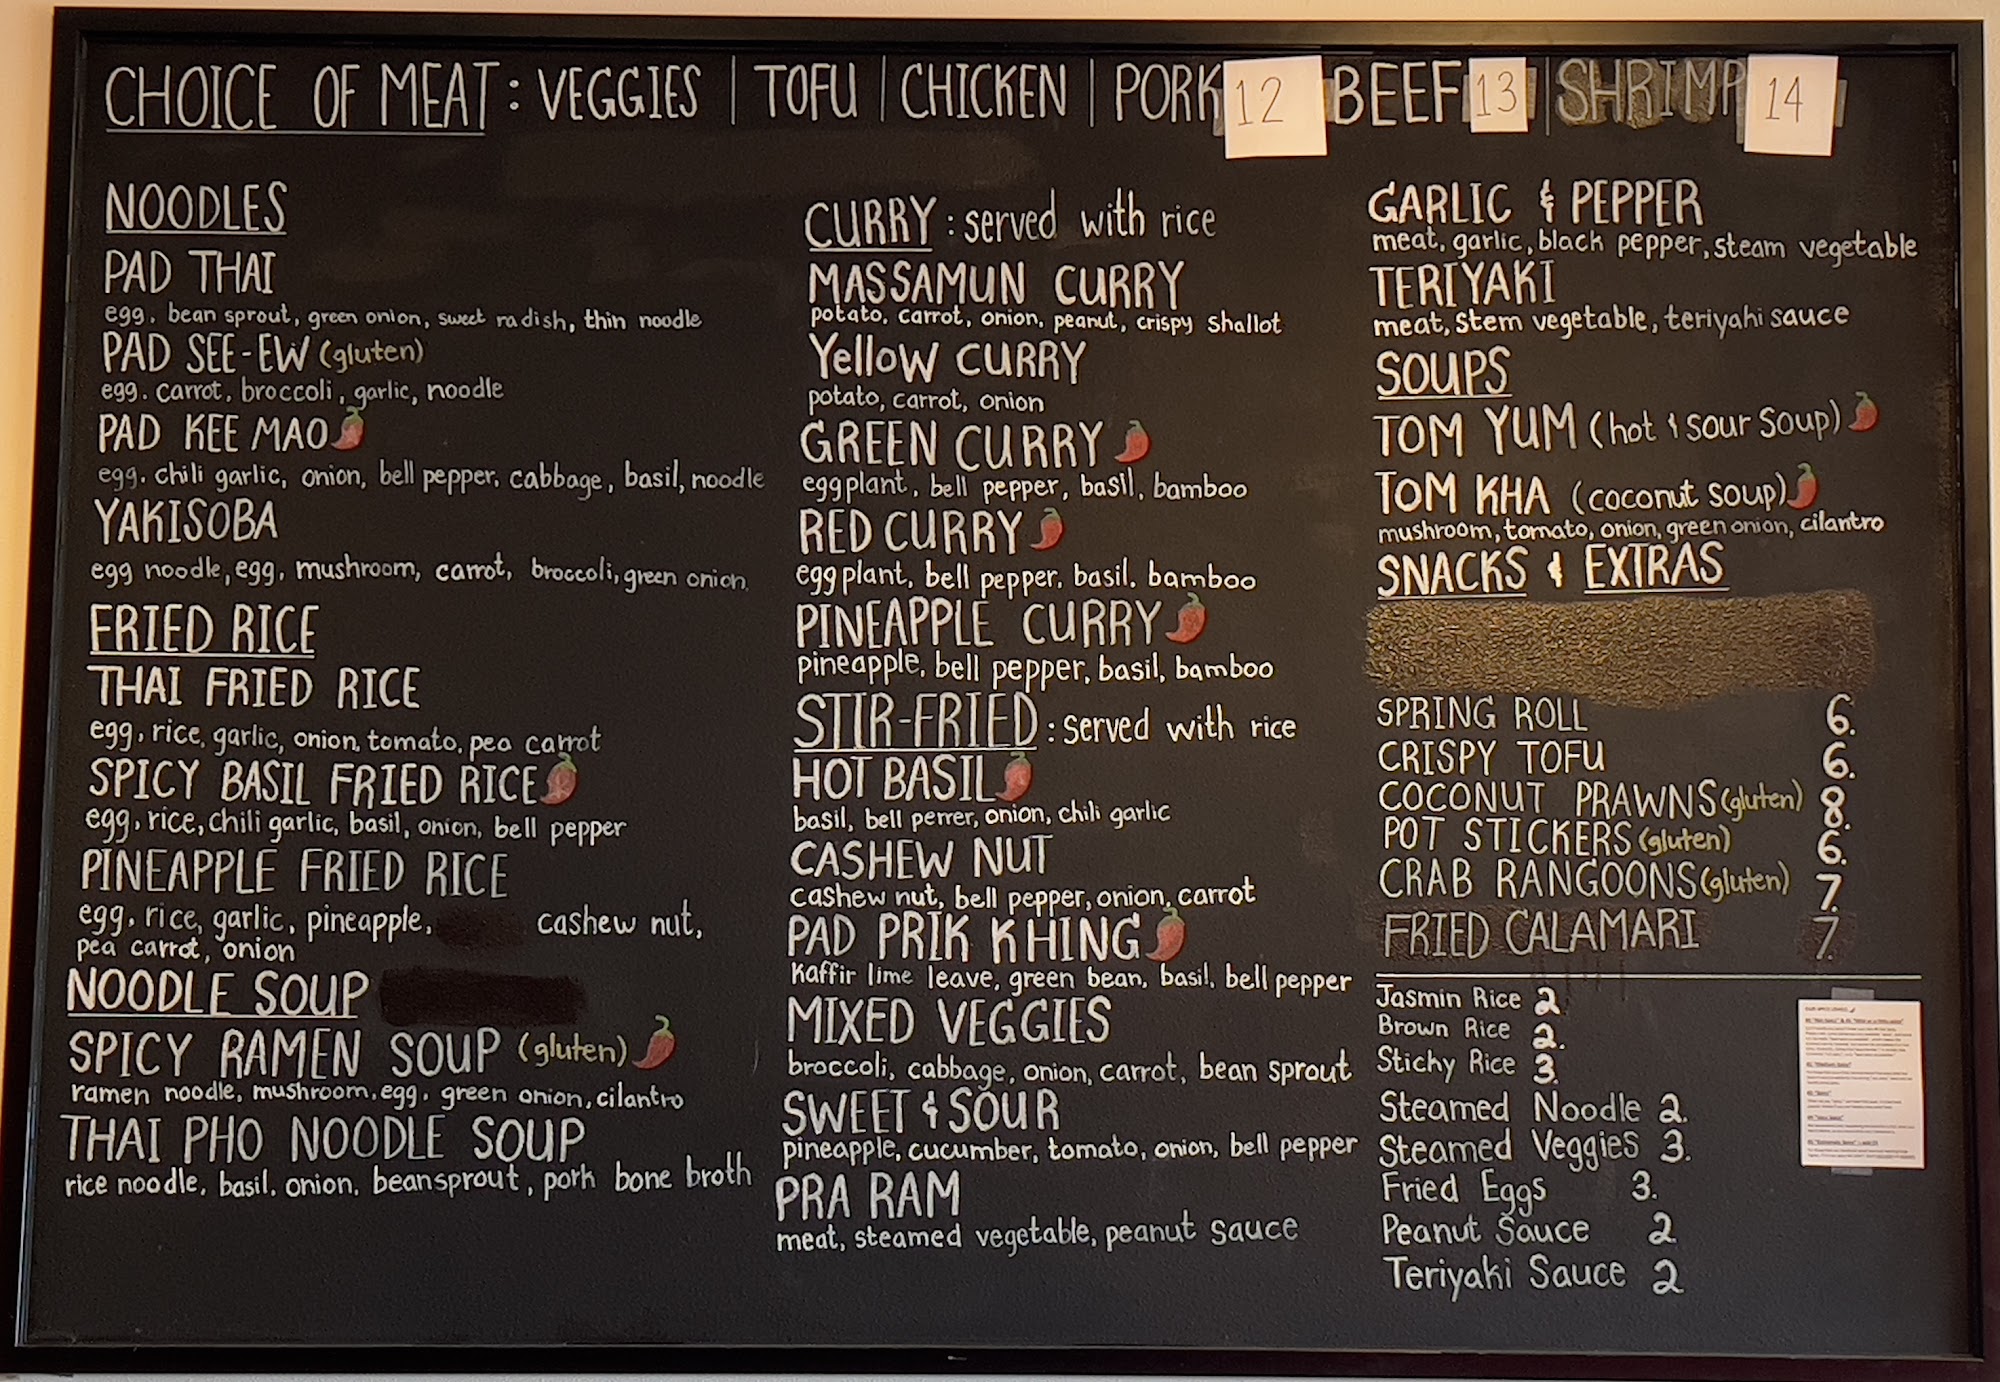 CHOICE OF MEAT: VEGGIES | TOFU | CHICKEN | PORK 12 BEEF 13 | SHRIMP 14
NOODLES
PAD THAI
egg, bean sprout, green onion, sweet radish, thin noodle
PAD SEE-EW (gluten)
egg, carrot, broccoli, garlic, noodle
PAD KEE MAO
egg, chili garlic, onion, bell pepper, cabbage, basil, noodle
YAKISOBA
egg noodle, egg, mushroom, carrot, broccoli, green onion
FRIED RICE
THAI FRIED RICE
egg, rice, garlic, onion, tomato, pea carrot
SPICY BASIL FRIED RICE
egg, rice, chili garlic, basil, onion, bell pepper
PINEAPPLE FRIED RICE
egg, rice, garlic, pineapple, cashew nut,
pea carrot, onion
NOODLE SOUP
SPICY RAMEN SOUP (gluten)
ramen noodle, mushroom, egg, green onion, cilantro
THAI PHO NOODLE SOUP
rice noodle, basil, onion, beansprout, pork bone broth
CURRY: served with rice
MASSAMUN CURRY
potato, carrot, onion, peanut, crispy shallot
Yellow CURRY
potato, carrot, onion
GREEN CURRY
eggplant, bell pepper, basil, bamboo
RED CURRY
eggplant, bell pepper, basil, bamboo
PINEAPPLE CURRY
pineapple, bell pepper, basil, bamboo
STIR-FRIED: served with rice
HOT BASIL
basil, bell perrer, onion, chili garlic
CASHEW NUT
cashew nut, bell pepper, onion, carrot
PAD PRIK KHING
Kaffir lime leave, green bean, basil, bell pepper
MIXED VEGGIES
broccoli, cabbage, onion, carrot, bean sprout
SWEET & SOUR
pineapple, cucumber, tomato, onion, bell pepper
PRA RAM
meat, steamed vegetable, peanut sauce
GARLIC & PEPPER
meat, garlic, black pepper, steam vegetable
TERIYAKI
meat, stem vegetable, teriyaki sauce
SOUPS
TOM YUM (hot & sour soup)
TOM KHA (coconut soup)
mushroom, tomato, onion, green onion, cilantro
SNACKS & EXTRAS
SPRING ROLL 6.
CRISPY TOFU 6.
COCONUT PRAWNS (gluten) 8.
POT STICKERS (gluten) 6.
CRAB RANGOONS (gluten) 7.
FRIED CALAMARI 7.
Jasmin Rice 2
Brown Rice 2.
Sticky Rice 3
Steamed Noodle 2.
Steamed Veggies 3.
Fried Eggs 3.
Peanut Sauce 2
Teriyaki Sauce 2